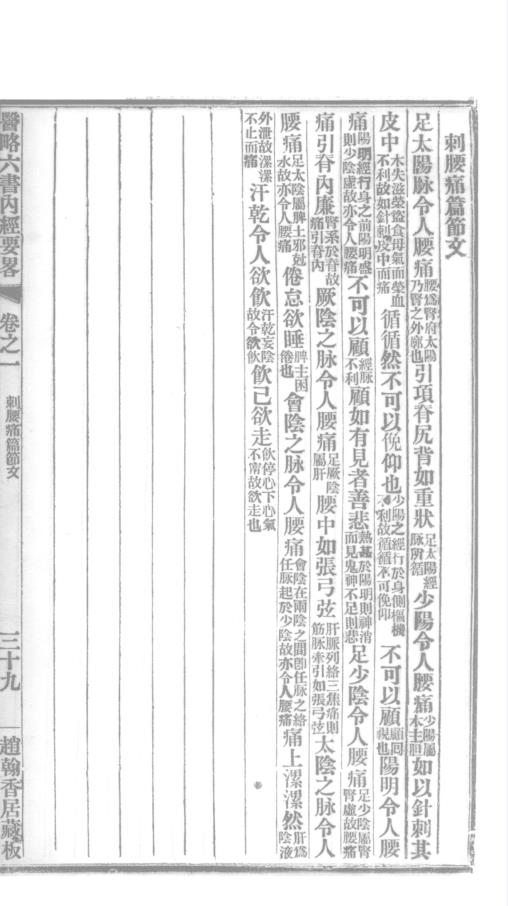 刺腰痛篇節文
足太陽脉令人腰痛腰爲腎府太陽乃腎之外廓也引項脊尻背如重狀足太陽經脉所循少陽令人腰痛少陽屬木主胆如以針刺其
皮中木失滋榮盜食母氣而榮血不利故如針刺皮中而痛循循然不可以俛仰也少陽之經行於身側樞機不利故循循不可俛仰不可以顧顧回視也陽明令人腰
痛陽明經行身之前陽明盛則少陰虛故亦令人腰痛不可以顧經脉不利顧如有見者善悲熱甚於陽明則神消而見鬼神不足則悲足少陰令人腰痛足少陰屬腎腎虛故腰痛
痛引脊內廉腎系於脊故痛引脊內厥陰之脉令人腰痛足厥陰屬肝腰中如張弓弦肝脈列絡三焦痛則筋脉牽引如張弓弦太陰之脉令人
腰痛足太陰屬脾土邪尅水故亦令人腰痛倦怠欲睡脾主困倦也會陰之脉令人腰痛會陰在兩陰之間卽任脉之絡任脉起於少陰故亦令人腰痛痛上漯漯然肝爲陰液
外泄故漯漯不止而痛汗乾令人欲飮汗乾妄陰故令欲飮飮已欲走飮停心下心氣不甯故欲走也
醫略六書內經要畧 卷之一 刺腰痛篇節文 三十九 趙翰香居藏板